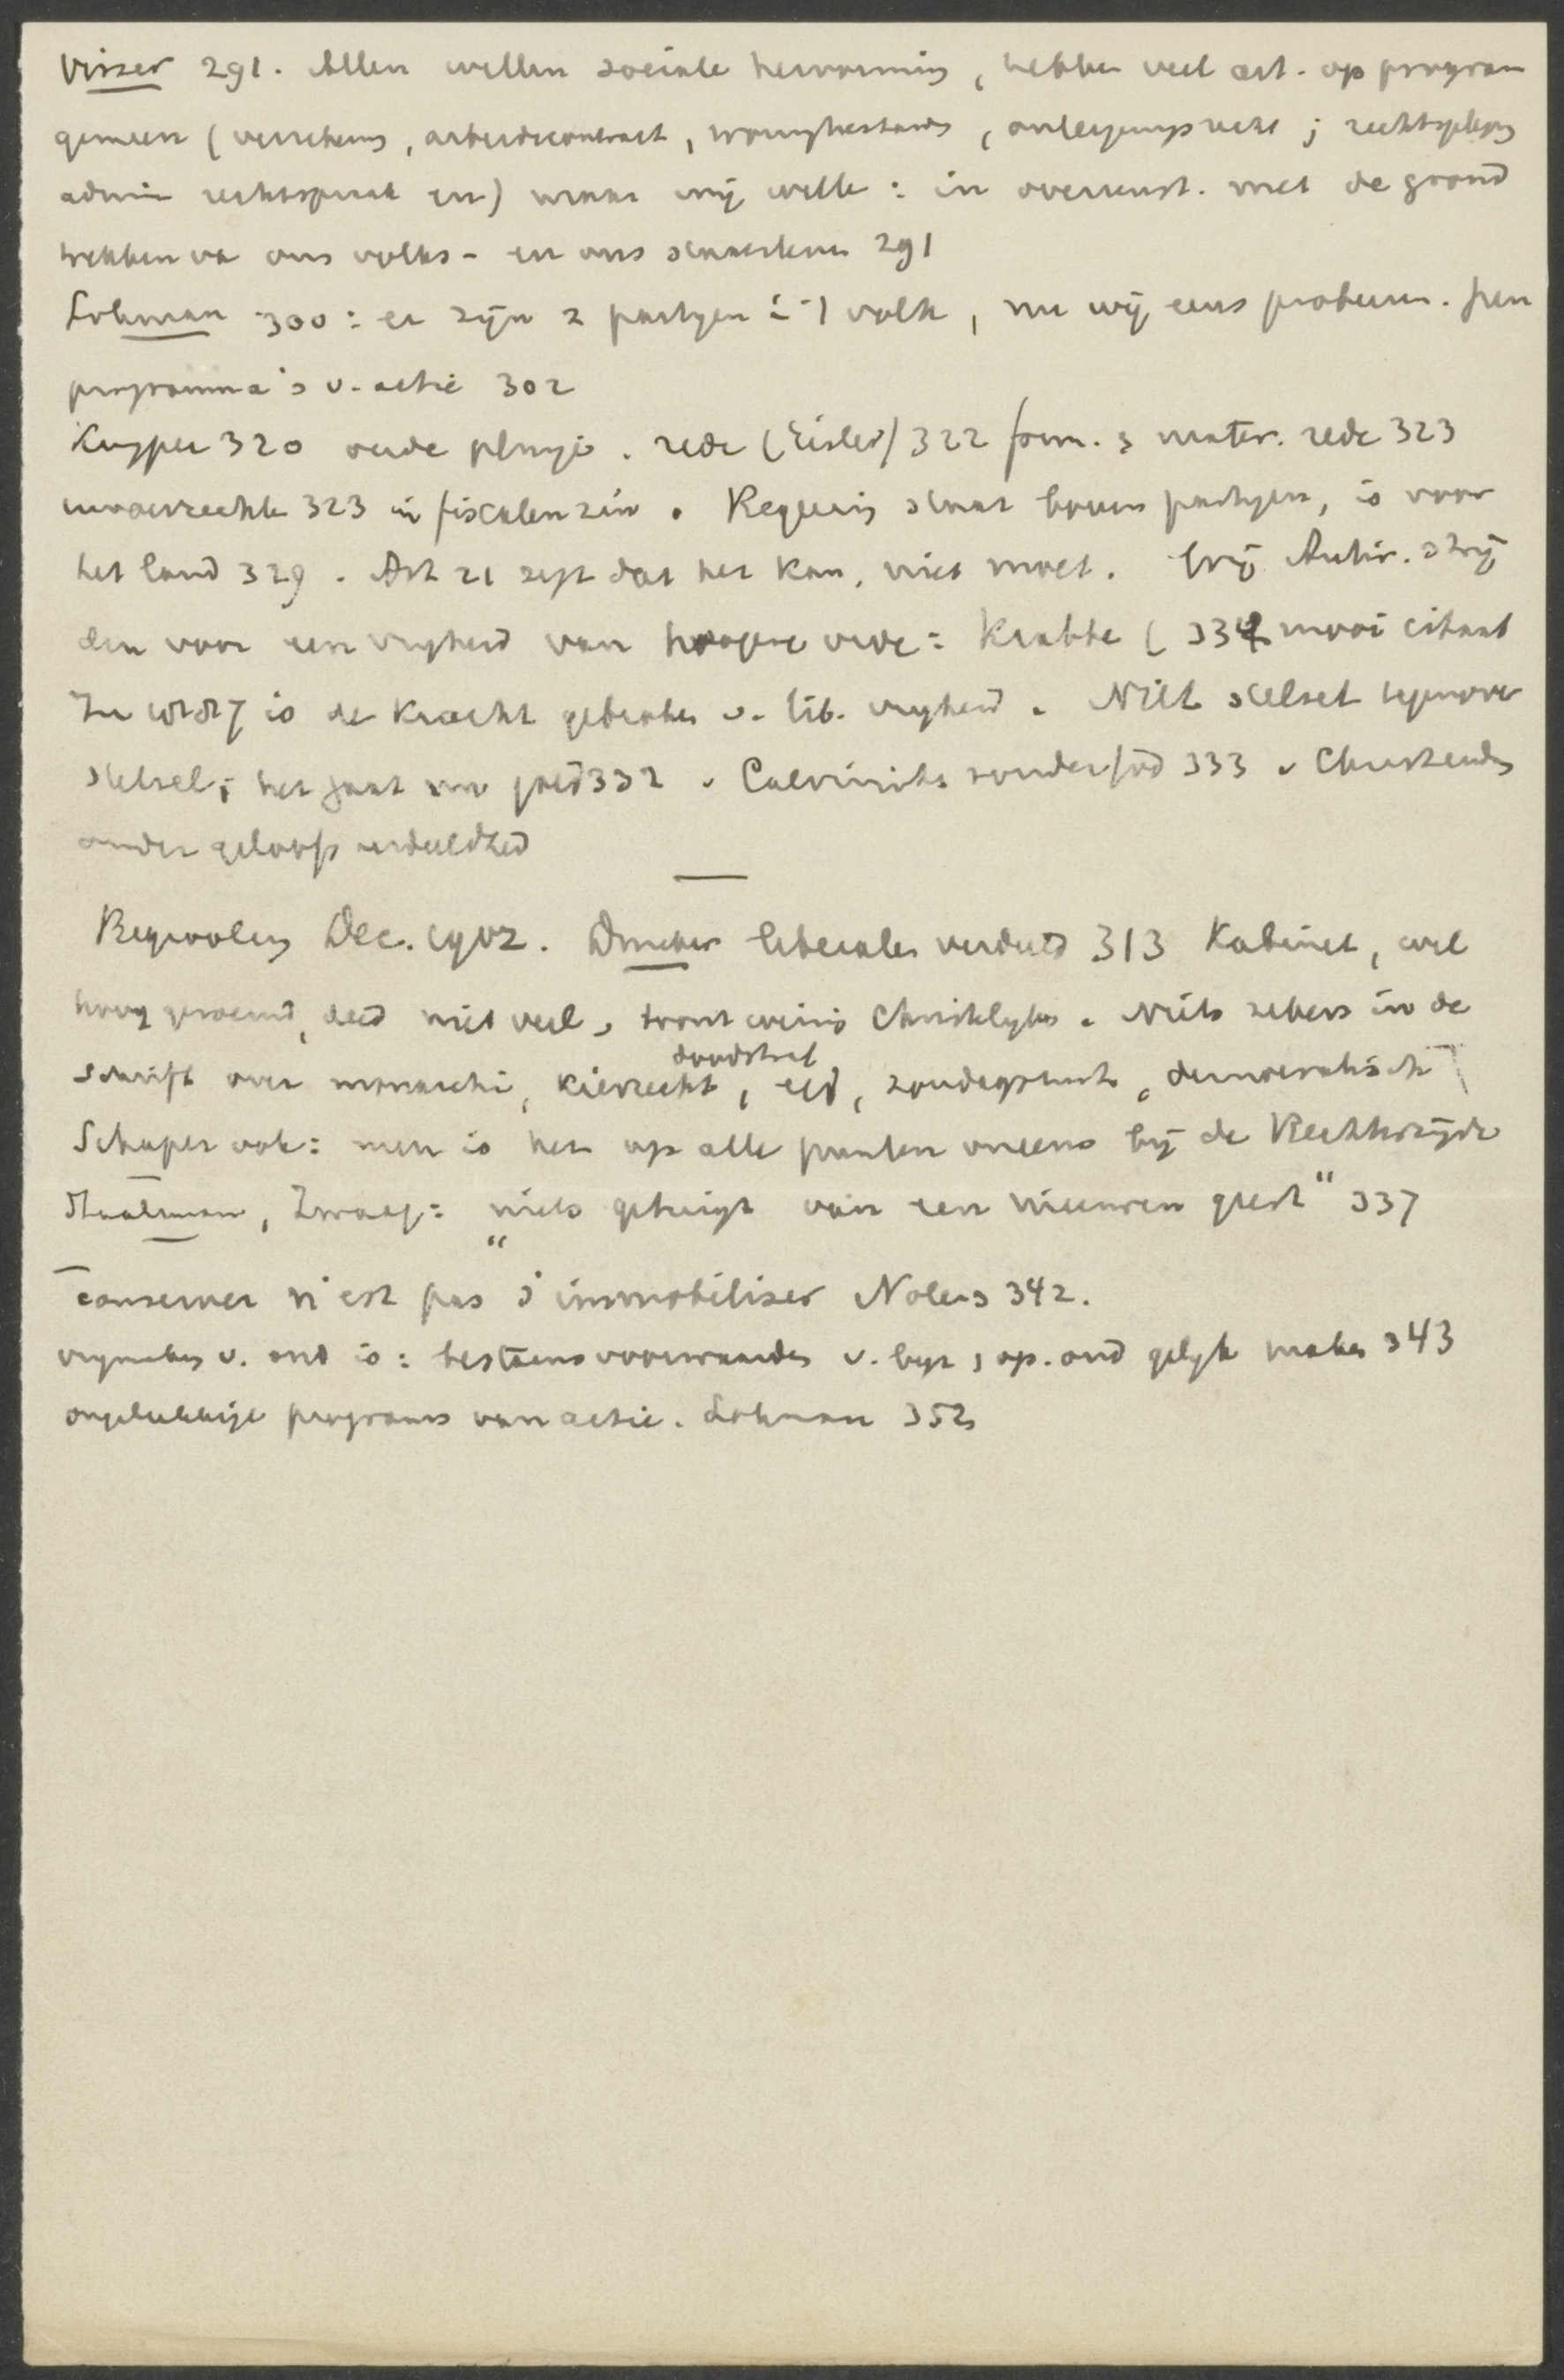 Visser 291. Allen willen sociale hervorming, hebben veel art. op program
gemeen (verzekering, arbeidscontract, , onteigeningsrecht; rechtspleging
admin rechtspraak en) maar wij wille: in overeenst. met de grond
trekken va ons volks- en ons staatsleven 291
Lohman 300: er zijn 2 partyen i 1 volk, nu wij eens probeeren. Geen
programma's v. actie 302
Kuyper 320 oude plunje. rede (Eisler) 322 form. & mater. rede 323
invoerrechte 323 in fiscalen zin. Regeering staat boven partyen, is voor
het land 329. Art 21 zegt dat het kan, niet moet. Wij Antir. strij
den voor een vryheid van hoogere orde: Krabbe (334 mooi citaat
In is de kracht gebroken v. lib. vryheid. Niet stelsel tegenover
stelsel; het gaat om 332. Calvinists zonder god 333. Christendom
onder geloofsverdeeldheid
Begrooting Dec. 1902. Drucker liberalen verdeeld 313 Kabinet, wel
hoog geroemd, deed niet veel, troont weinig Christelyks. Niets zekers in de
doodstraf
Schrift over monarchie, kiesrecht, eed, zondagsrust, democratisch
Schaper ook: men is het op alle punten oneens bij de Rechterzijde
Staalman, : "niets getuigt van een nieuwen geest" 337
conserver n'est pas s'immobiliser Nolens 342.
vrymaking v. ond is: bestaansvoorwaarden v. byz, op. ond gelyk maken 343
ongelukkige programs van actie. Lohman 352